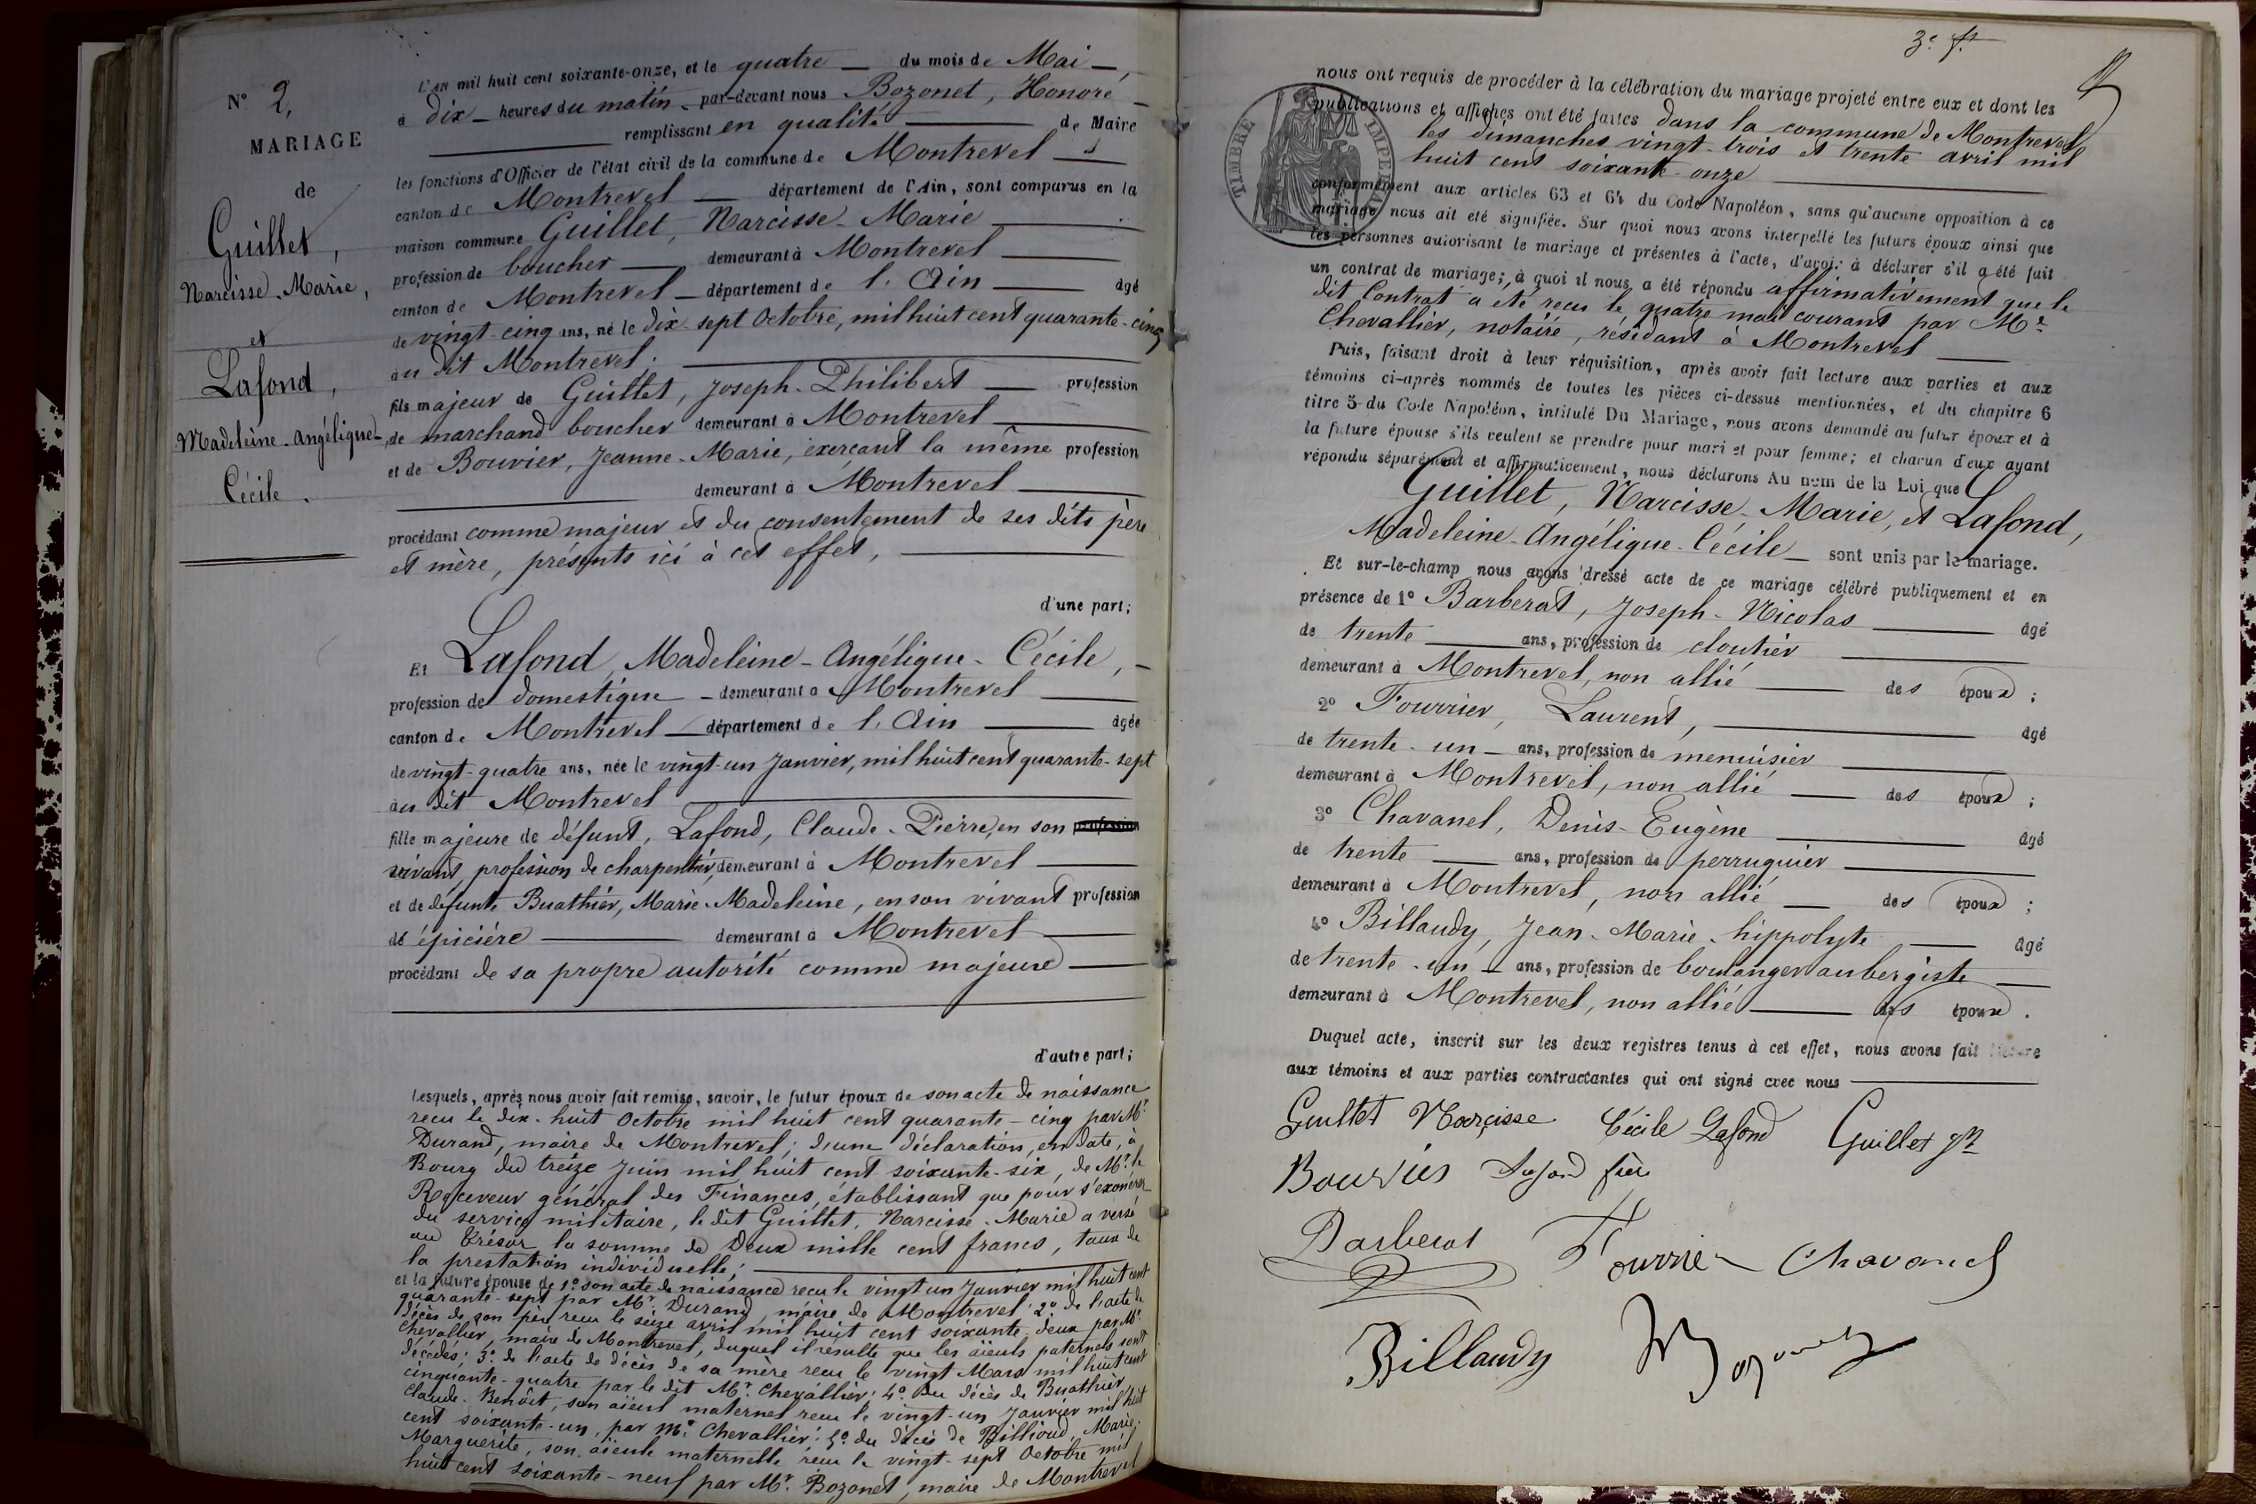 N° 2.
MARIAGE
de
Guillet,
Narcisse-Marie,
et
Lafond,
Madeleine-Angélique-
Cécile.
L'AN mil huit cent soixante-onze, et le quatre du mois de Mai,
à dix heures du matin, par-devant nous Bozonet, Honoré
remplissant en qualité de Maire
les fonctions d'Officier de l'état civil de la commune de Montrevel
canton de Montrevel département de l'Ain, sont comparus en la
maison commune Guillet, Narcisse-Marie
profession de boucher demeurant à Montrevel
canton de Montrevel département de l'Ain âgé
de vingt-cinq ans, né le dix-sept Octobre, mil huit cent quarante-cinq
au dit Montrevel.
fils majeur de Guillet, Joseph-Philibert profession
de marchand boucher demeurant à Montrevel
et de Bouvier, Jeanne-Marie, exerçant la même profession
demeurant à Montrevel
procédant comme majeur et du consentement de ses dits père
et mère, présents ici à cet effet,
d'une part;
Et Lafond, Madeleine-Angélique-Cécile,
profession de domestique demeurant à Montrevel
canton de Montrevel département de l'Ain âgée
de vingt-quatre ans, née le vingt-un Janvier, mil huit cent quarante-sept
au dit Montrevel
fille majeure de défunt, Lafond, Claude-Pierre, en son profession
vivant, profession de charpentier, demeurant à Montrevel
et de défunte Buathier, Marie-Madeleine, en son vivant profession
de épicière demeurant à Montrevel
procédant de sa propre autorité comme majeure
d'autre part;
Lesquels, après nous avoir fait remise, savoir, le futur époux de son acte de naissance
recu le dix-huit Octobre mil huit cent quarante-cinq par Mr.
Durand, maire de Montrevel; d'une déclaration, en date, à
Bourg du treize Juin mil huit cent soixante-six, de Mr. le
Receveur général des Finances, établissant que pour s'exonérer
du service militaire, le dit Guillet, Narcisse-Marie a versé
au trésor la somme de Deux mille cent francs, taux de
la prestation individuelle;
et la future épouse de 1° son acte de naissance recu le vingt un Janvier mil huit cent
quarante-sept par Mr. Durand, maire de Montrevel; 2° de l'acte de
décès de son père recu le seize avril mil huit cent soixante-deux par Mr.
Chevallier, maire de Montrevel, duquel il résulte que les aïeuls paternels sont
décédés; 3° de l'acte de décès de sa mère recu le vingt Mars mil huit cent
cinquante-quatre par le dit Mr. Chevallier; 4° du décès de Buathier,
Claude-Benôit, son aïeul maternel recu le vingt-un Janvier mil huit
cent soixante-un, par Mr. Chevallier; 5° du décès de Billioud, Marie-
Marguerite, son aïeule maternelle recu le vingt-sept Octobre mil
huit cent soixante-neuf par Mr. Bozonet, maire de Montrevel
3e f.
TIMBRE IMPERIAL
nous ont requis de procéder à la célébration du mariage projeté entre eux et dont les
publications et affiches ont été faites dans la commune de Montrevel
les dimanches vingt-trois et trente avril mil
huit cent soixante-onze
conformément aux articles 63 et 64 du Code Napoléon, sans qu'aucune opposition à ce
mariage nous ait été signifiée. Sur quoi nous avons interpellé les futurs époux ainsi que
les personnes autorisant le mariage et présentes à l'acte, d'avoir à déclarer s'il a été fait
un contrat de mariage; à quoi il nous a été répondu affirmativement que le
dit Contrat a été recu le quatre mai courant par Me.
Chevallier, notaire, résidant à Montrevel
Puis, faisant droit à leur réquisition, après avoir fait lecture aux parties et aux
témoins ci-après nommés de toutes les pièces ci-dessus mentionnées, et du chapitre 6
titre 5 du Code Napoléon, intitulé Du Mariage, nous avons demandé au futur époux et à
la future épouse s'ils veulent se prendre pour mari et pour femme; et chacun d'eux ayant
répondu séparément et affirmativement, nous déclarons Au nom de la Loi que
Guillet, Narcisse-Marie, et Lafond,
Madeleine-Angélique-Cécile sont unis par le mariage.
Et sur-le-champ nous avons dressé acte de ce mariage célébré publiquement et en
présence de 1° Barberat, Joseph-Nicolas âgé
de trente ans, profession de cloutier
demeurant à Montrevel, non allié des époux;
2° Fourrier, Laurent, âgé
de trente-un ans, profession de menuisier
demeurant à Montrevel, non allié des époux;
3° Chavanel, Denis-Eugène âgé
de trente ans, profession de perruquier
demeurant à Montrevel, non allié des époux;
4° Billaudy, Jean-Marie-hippolyte âgé
de trente-un ans, profession de boulanger aubergiste
demeurant à Montrevel, non allié des époux.
Duquel acte, inscrit sur les deux registres tenus à cet effet, nous avons fait lecture
aux témoins et aux parties contractantes qui ont signé avec nous
Guillet Narcisse Cécile Lafond Guillet
Bouvier Lafond frère
Barberat Fourrier Chavanel
Billaudy Bozonet